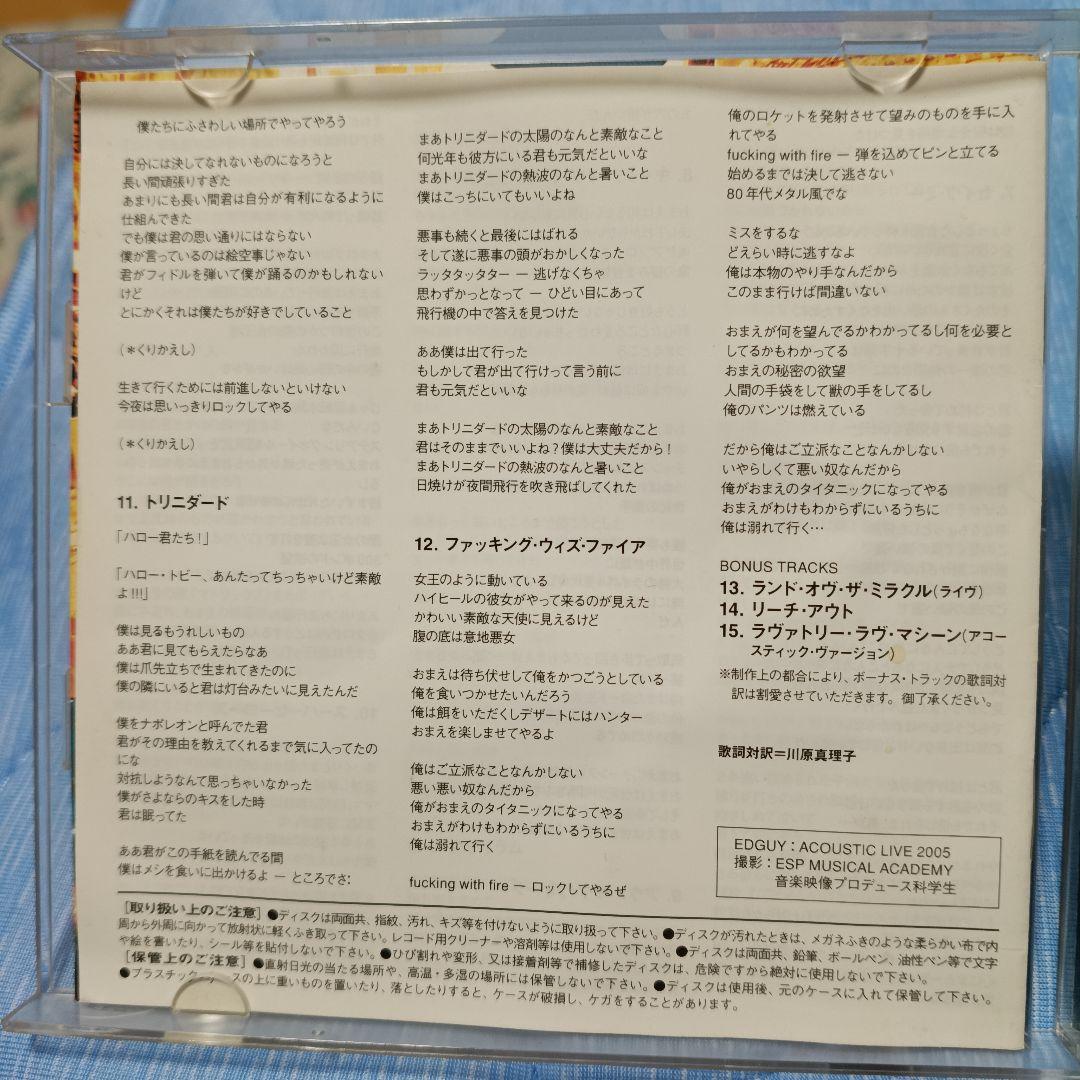 僕たちにふさわしい場所でやってやろう
自分には決してなれないものになろうと
長い間頑張りすぎた
あまりにも長い間君は自分が有利になるように
仕組んできた
でも僕は君の思い通りにはならない
僕が言っているのは絵空事じゃない
君がフィドルを弾いて僕が踊るのかもしれない
けど
とにかくそれは僕たちが好きでしていること
(＊くりかえし)
生きて行くためには前進しないといけない
今夜は思いっきりロックしてやる
(＊くりかえし)
11. トリニダード
「ハロー君たち！」
「ハロー・トビー、あんたってちっちゃいけど素敵
よ!!!」
僕は見るもうれしいもの
ああ君に見てもらえたらなあ
僕は爪先立ちで生まれてきたのに
僕の隣にいると君は灯台みたいに見えたんだ
僕をナポレオンと呼んでた君
君がその理由を教えてくれるまで気に入ってたの
にな
対抗しようなんて思っちゃいなかった
僕がさよならのキスをした時
君は眠ってた
ああ君がこの手紙を読んでる間
僕はメシを食いに出かけるよ ー ところでさ:
まあトリニダードの太陽のなんと素敵なこと
何光年も彼方にいる君も元気だといいな
まあトリニダードの熱波のなんと暑いこと
僕はこっちにいてもいいよね
悪事も続くと最後にはばれる
そして遂に悪事の頭がおかしくなった
ラッタタッタター ー 逃げなくちゃ
思わずかっとなって ー ひどい目にあって
飛行機の中で答えを見つけた
ああ僕は出て行った
もしかして君が出て行けって言う前に
君も元気だといいな
まあトリニダードの太陽のなんと素敵なこと
君はそのままでいいよね？僕は大丈夫だから！
まあトリニダードの熱波のなんと暑いこと
日焼けが夜間飛行を吹き飛ばしてくれた
12. ファッキング・ウィズ・ファイア
女王のように動いている
ハイヒールの彼女がやって来るのが見えた
かわいい素敵な天使に見えるけど
腹の底は意地悪女
おまえは待ち伏せして俺をかつごうとしている
俺を食いつかせたいんだろう
俺は餌をいただくしデザートにはハンター
おまえを楽しませてやるよ
俺はご立派なことなんかしない
悪い悪い奴なんだから
俺がおまえのタイタニックになってやる
おまえがわけもわからずにいるうちに
俺は溺れて行く
fucking with fire ー ロックしてやるぜ
俺のロケットを発射させて望みのものを手に入
れてやる
fucking with fire ー 弾を込めてピンと立てる
始めるまでは決して逃さない
80年代メタル風でな
ミスをするな
どえらい時に逃すなよ
俺は本物のやり手なんだから
このまま行けば間違いない
おまえが何を望んでるかわかってるし何を必要と
してるかもわかってる
おまえの秘密の欲望
人間の手袋をして獣の手をしてるし
俺のパンツは燃えている
だから俺はご立派なことなんかしない
いやらしくて悪い奴なんだから
俺がおまえのタイタニックになってやる
おまえがわけもわからずにいるうちに
俺は溺れて行く…
BONUS TRACKS
13. ランド・オヴ・ザ・ミラクル(ライヴ)
14. リーチ・アウト
15. ラヴァトリー・ラヴ・マシーン(アコー
スティック・ヴァージョン)
※制作上の都合により、ボーナス・トラックの歌詞対
訳は割愛させていただきます。御了承ください。
歌詞対訳＝川原真理子
EDGUY：ACOUSTIC LIVE 2005
撮影：ESP MUSICAL ACADEMY
音楽映像プロデュース科学生
[取り扱い上のご注意] ●ディスクは両面共、指紋、汚れ、キズ等を付けないように取り扱って下さい。●ディスクが汚れたときは、メガネふきのような柔らかい布で内
周から外周に向かって放射状に軽くふき取って下さい。レコード用クリーナーや溶剤等は使用しないで下さい。●ディスクは両面共、鉛筆、ボールペン、油性ペン等で文字
や絵を書いたり、シール等を貼付しないで下さい。●ひび割れや変形、又は接着剤等で補修したディスクは、危険ですから絶対に使用しないで下さい。
[保管上のご注意] ●直射日光の当たる場所や、高温・多湿の場所には保管しないで下さい。●ディスクは使用後、元のケースに入れて保管して下さい。
●プラスチックケースの上に重いものを置いたり、落としたりすると、ケースが破損し、ケガをすることがあります。